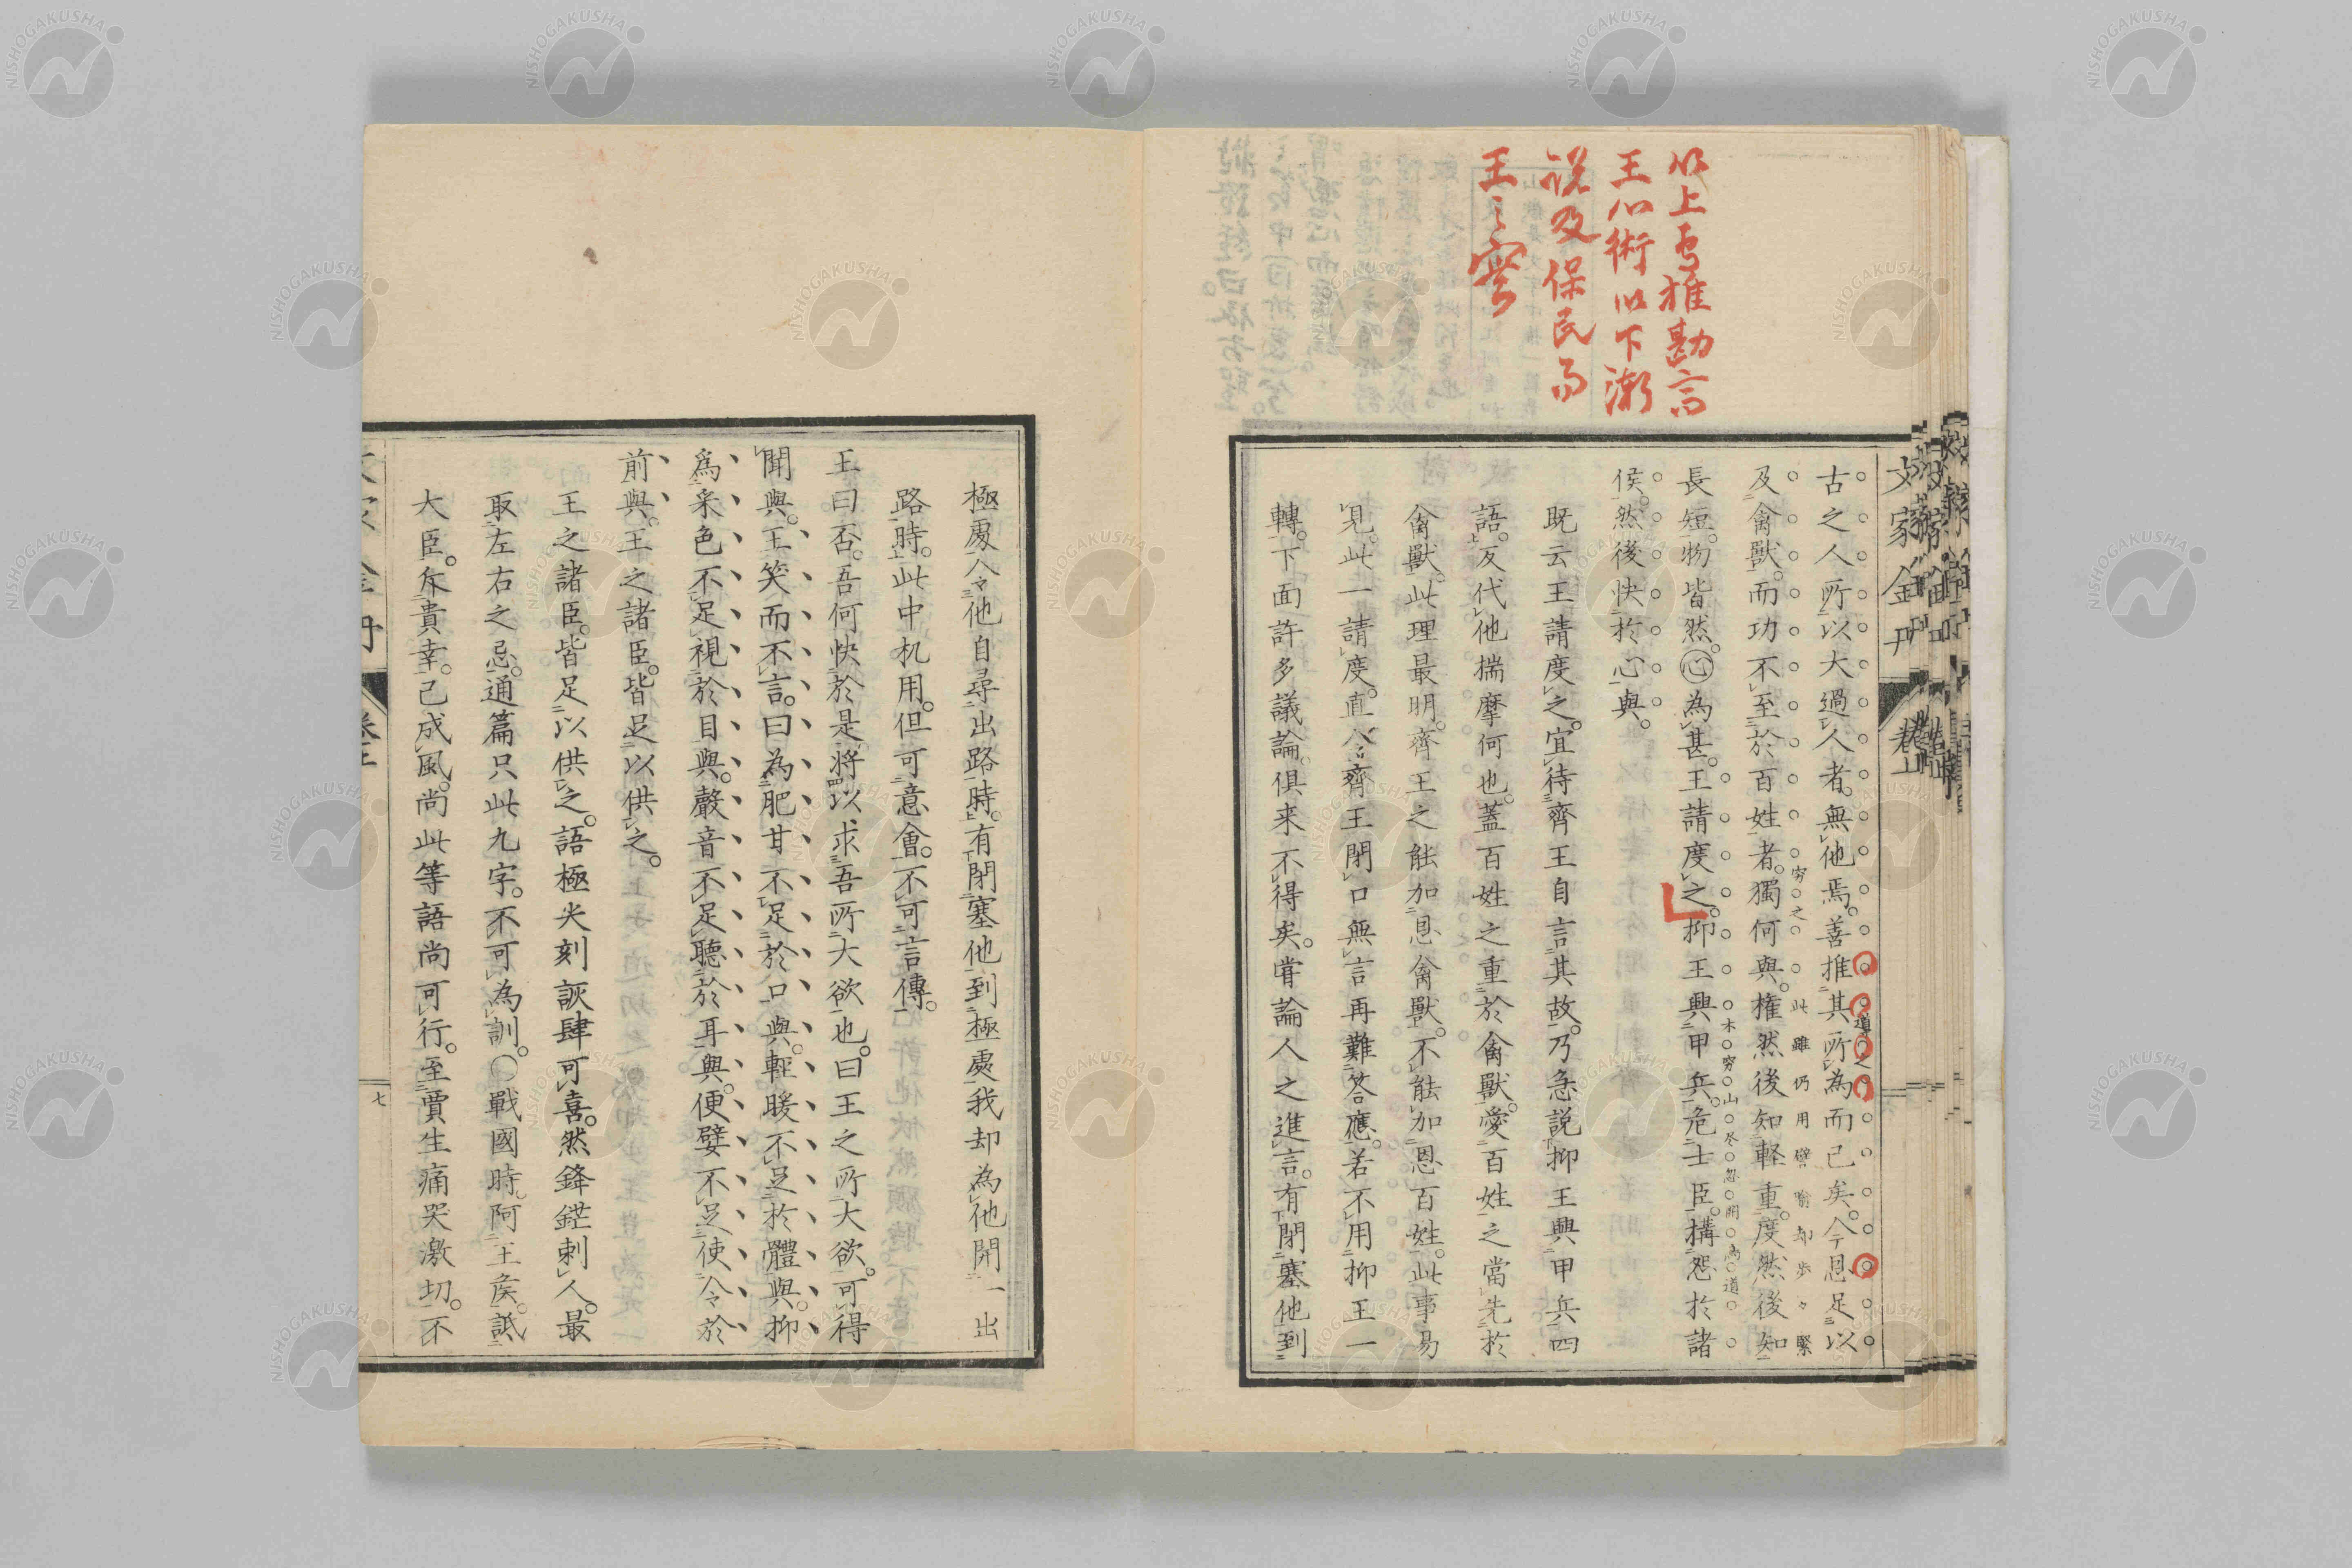 以上專推勘言
王心術以下漸
説及保民而
王之實
文家金丹
古之人所以大過人者。無他焉。善推其所為而已矣。今恩足以
及禽獸。而功不至於百姓者。獨何與。権然後知軽重。度然後知
窮之
此雖仍用譬喻却步々緊
長短。物皆然。心為甚。王請度之。抑王興甲兵。危士臣。構怨於諸
侯。然後快於心與。
既云王請度之。宜待齊王自言其故。乃急説抑王興甲兵四
語。反代他揣摩何也。蓋百姓之重於禽獸。愛百姓之當先於
禽獸。此理最明。齊王之能加恩禽獸。不能加恩百姓。此事易
見。此一請度。直令齊王閉口無言再難答應。若不用抑王一
轉。下面許多議論。俱来不得矣。嘗論人之進言。有閉塞他到
極處令他自尋出路時。有閉塞他到極處我却為他開一出
路時。此中机用。但可意會。不可言傳。
王曰否。吾何快於是。將以求吾所大欲也。曰王之所大欲。可得
聞與。王笑而不言。曰為肥甘不足於口與。輕暖不足於體與。抑
為采色不足視於目與。聲音不足聽於耳與。便嬖不足使令於
前與。王之諸臣。皆足以供之。
王之諸臣。皆足以供之。語極尖刻詼肆可喜。然鋒鋩刺人。最
取左右之忌。通篇只此九字。不可為訓。○戰國時。阿王侯。詆
大臣。斥貴幸。已成風。尚此等語尚可行。至賈生痛哭激切。不
七